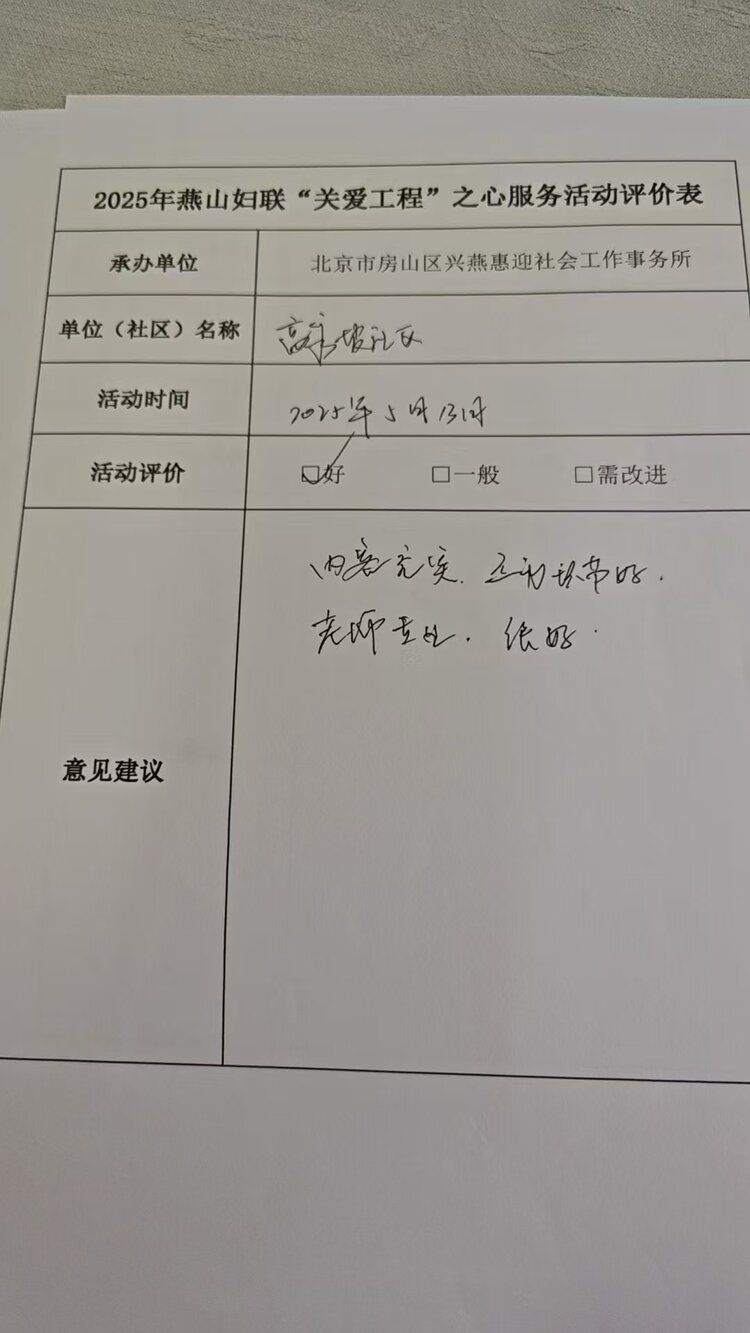 2025年燕山妇联“关爱工程”之心服务活动评价表
承办单位 北京市房山区兴燕惠迎社会工作事务所
单位（社区）名称 高家坡社区
活动时间 2025年5月13日
活动评价 ☑好 □一般 □需改进
内容充实，互动环节好.
老师专业，很好.
意见建议